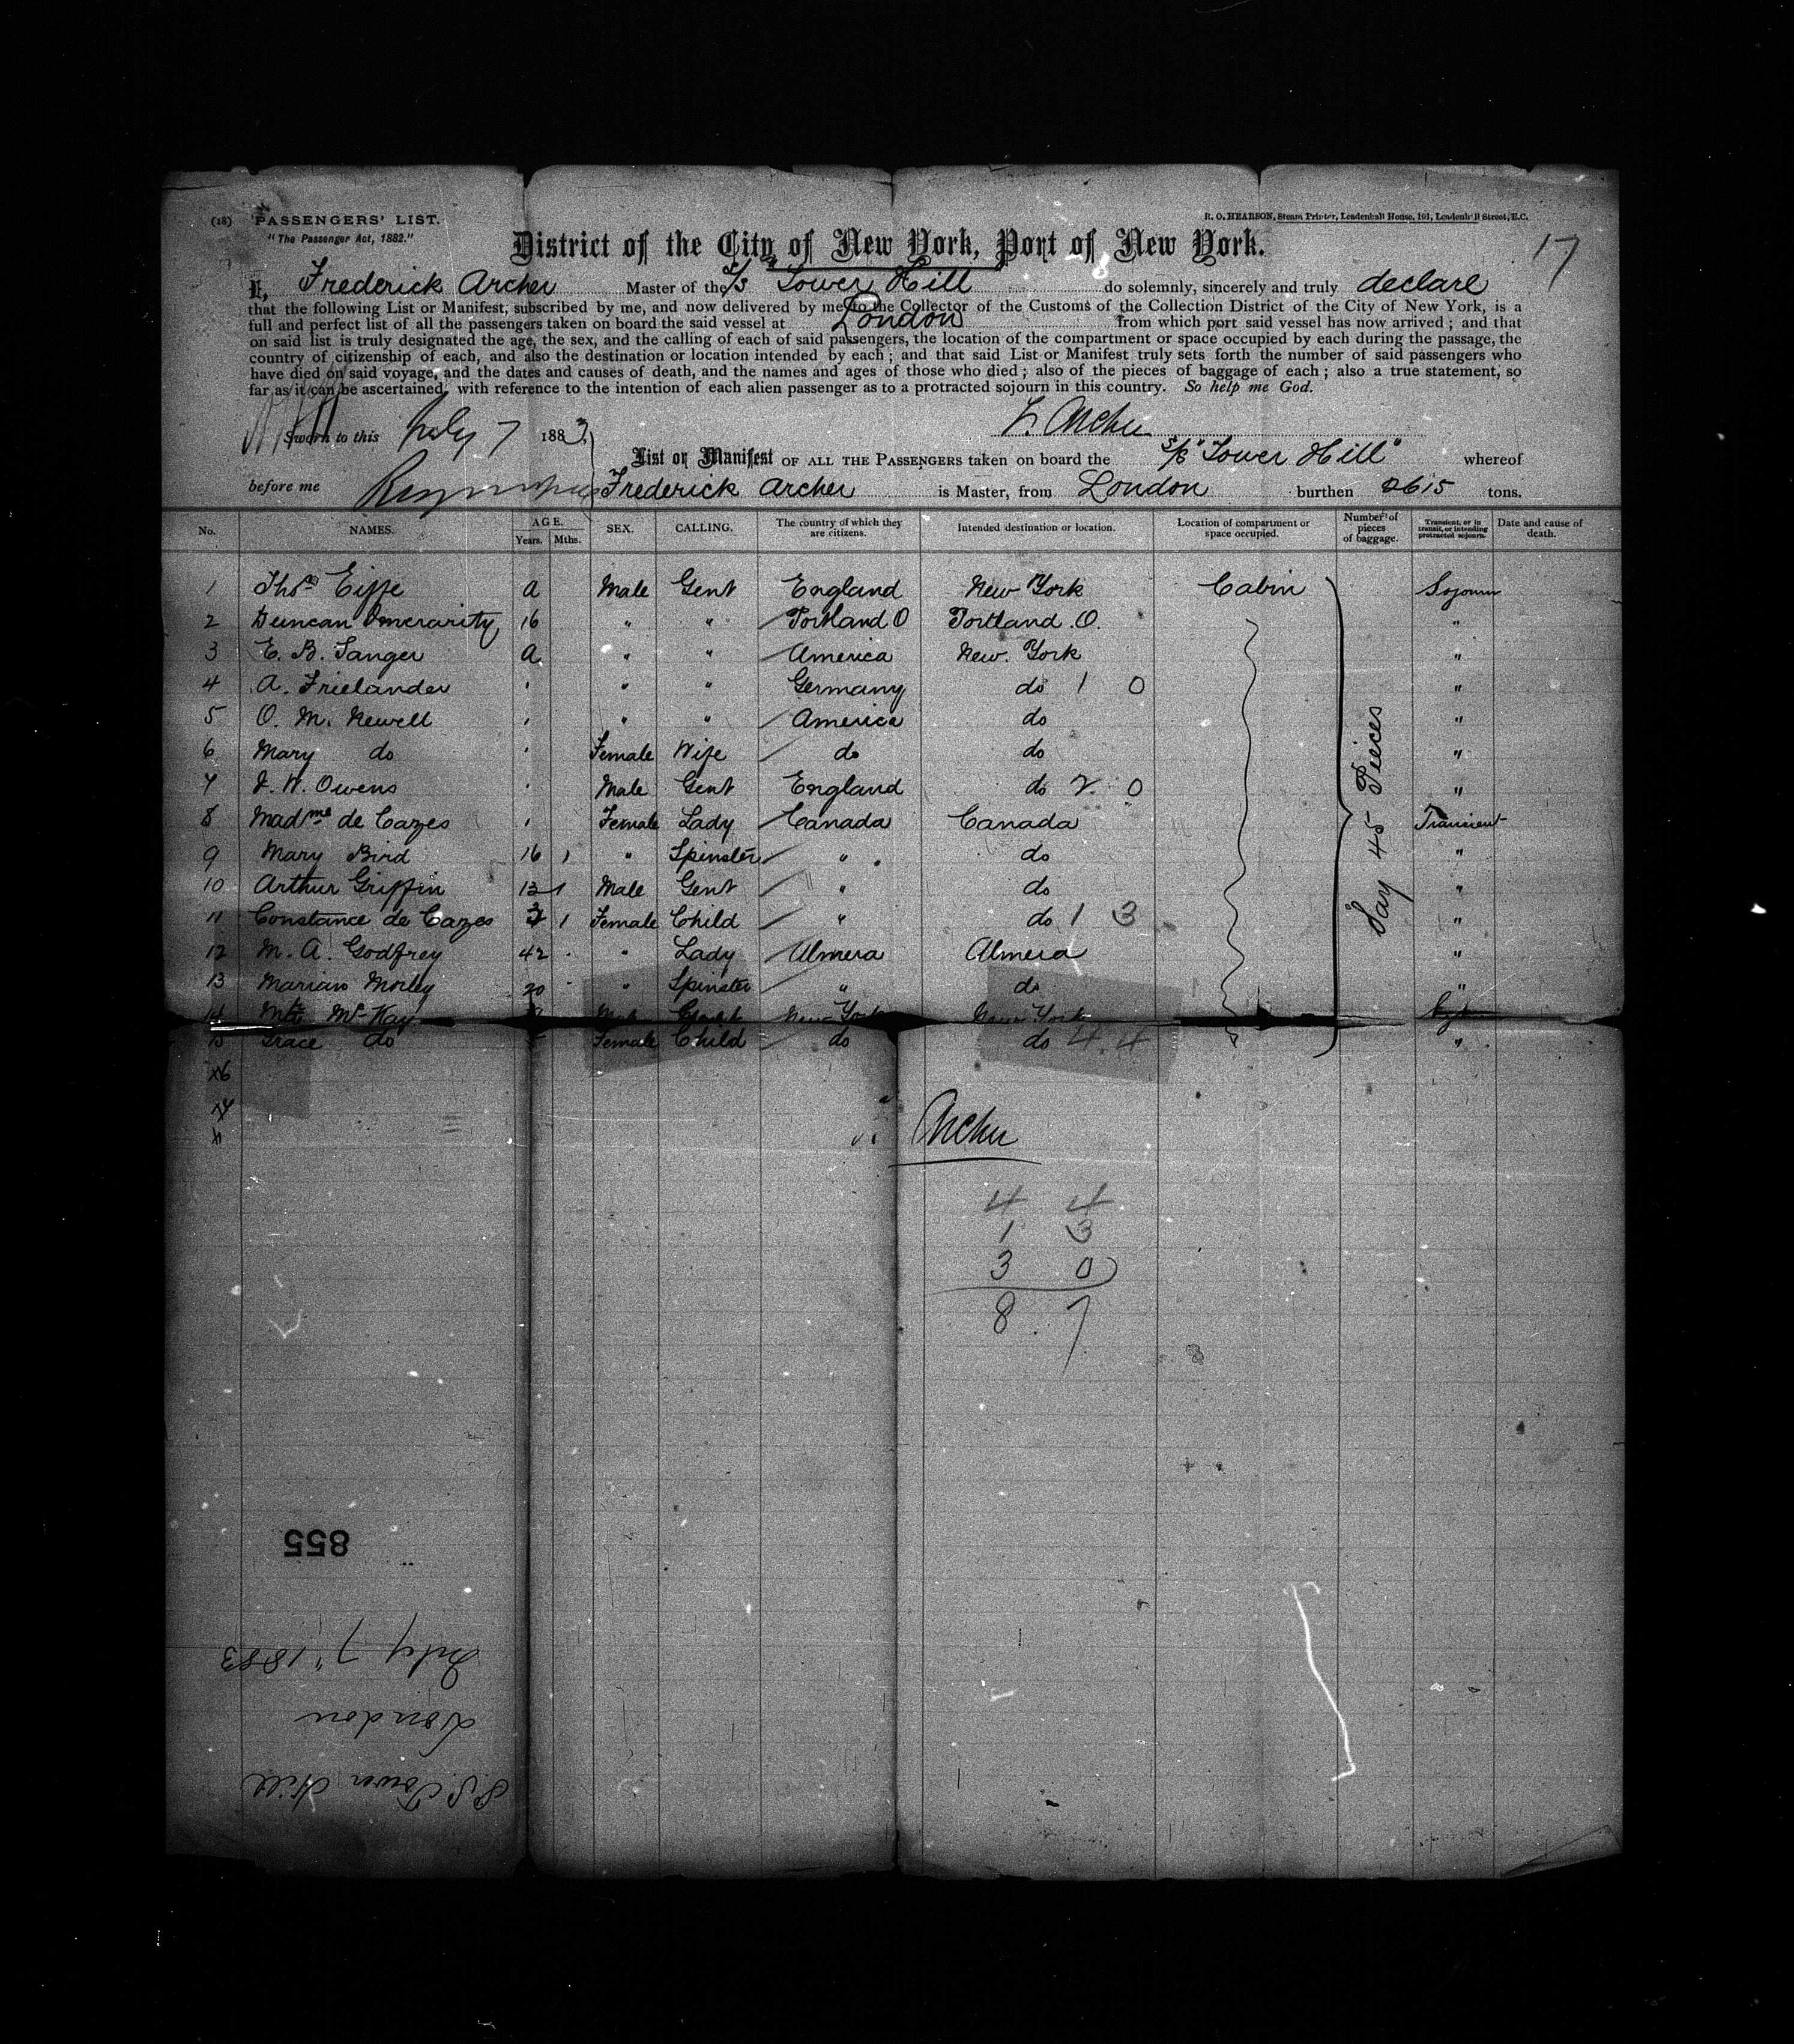 (18) PASSENGERS' LIST.
R. O. HEARSON, Steam Printer, Leadenhall House, 101, Leadenhall Street, E.C.
"The Passenger Act, 1882."
District of the City of New York, Port of New York.
17
I, Frederick Archer Master of the S/S "Tower Hill do solemnly, sincerely and truly declare
that the following List or Manifest, subscribed by me, and now delivered by me to the Collector of the Customs of the Collection District of the City of New York, is a
full and perfect list of all the passengers taken on board the said vessel at London from which port said vessel has now arrived; and that
on said list is truly designated the age, the sex, and the calling of each of said passengers, the location of the compartment or space occupied by each during the passage, the
country of citizenship of each, and also the destination or location intended by each; and that said List or Manifest truly sets forth the number of said passengers who
have died on said voyage, and the dates and causes of death, and the names and ages of those who died; also of the pieces of baggage of each; also a true statement, so
far as it can be ascertained, with reference to the intention of each alien passenger as to a protracted sojourn in this country. So help me God.
Sworn to this July 7 1883. F. Archer
List or Manifest OF ALL THE PASSENGERS taken on board the S/S "Tower Hill" whereof
before me Frederick Archer is Master, from London burthen 2615 tons.
No. NAMES. AGE. Years. Mths. SEX. CALLING. The country of which they are citizens. Intended destination or location. Location of compartment or space occupied. Number of pieces of baggage. Transient, or in transit, or intending protracted sojourn. Date and cause of death.
1 Thos Eiffe a Male Gent England New York Cabin Sojourn
2 Duncan 16 " " Portland O Portland . O. "
3 E. B. Sanger a " " America New York "
4 A. Frielander ' " " Germany do 1 0 "
5 O. M. Newell ' " " America do "
6 Mary do ' Female Wife do do "
7 J. W. Owens ' Male Gent England do 2 0 "
8 Madme de Cazes ' Female Lady Canada Canada Transient
9 Mary Bird 16 " Spinster " do "
10 Arthur Griffin 13 Male Gent " do "
11 Constance de Cazes 3 Female Child " do 1 3 "
12 M. A. Godfrey 42 " Lady Almera Almera "
13 Marian Morley 20 " Spinster " do "
14 Mc Kay New York New York
15 Grace do Female Child do do 4 4 "
Say 45 Pieces
16
17
Archer
4 4
1 3
3 0
8 7
855
July 7" 1883
London
S.S. Tower Hill